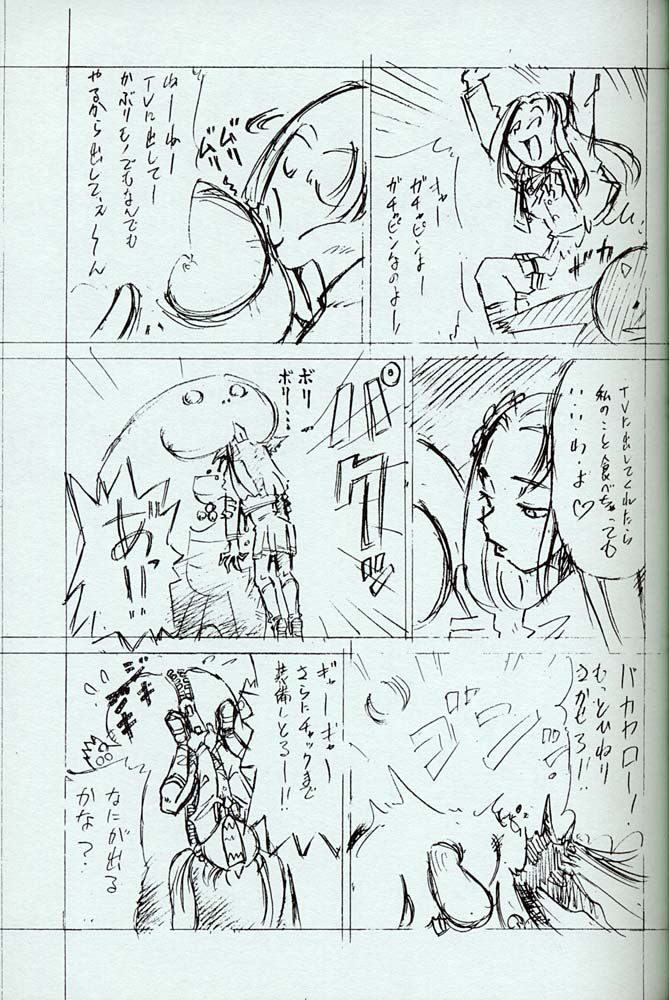 キャー
ガチャピンよー
ガチャピンなのよー!
ボカ
ムリ
ムリ
ねーねー
TVに出してー
かぶりモノでもなんでも
やるから出して、え〜ん
TVに出してくれたら
私のこと食べちゃっても
い・い・わ・よ♡
バクッ
ボリ
ボリ…
あ"!!
バカヤロー!
もっとひねり
きかせろ!!
ゴン
ギャーギャー
さらにチャックまで
装備しとるー!!
なにが出る
かな?